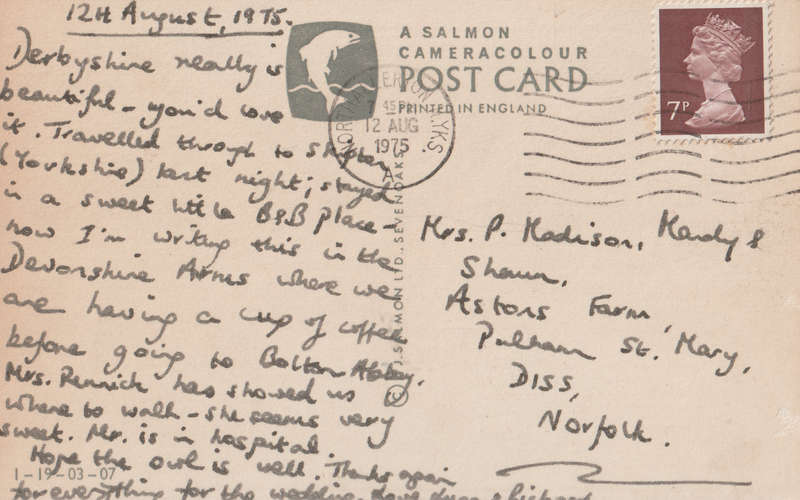 12th August, 1975.
Derbyshire really is
beautiful - you'd love
it. Travelled through to Skipton
(Yorkshire) last night; stayed
in a sweet little B&B place -
now I'm writing this in the
Devonshire Arms where we
are having a cup of coffee
before going to Bolton Abbey.
Mrs. Rennick has showed us
where to walk - she seems very
sweet. Mr. is in hospital.
Hope the owl is well. Thanks again
for everything for the wedding. Love & Richard
A SALMON
CAMERACOLOUR
POST CARD
PRINTED IN ENGLAND
12 AUG
1975
YKS.
7P
J. SALMON LTD., SEVENOAKS
©
Mrs. P. Madison, Mandy &
Shaun,
Astons Farm,
Pulham St. Mary,
DISS,
Norfolk.
1-19-03-07